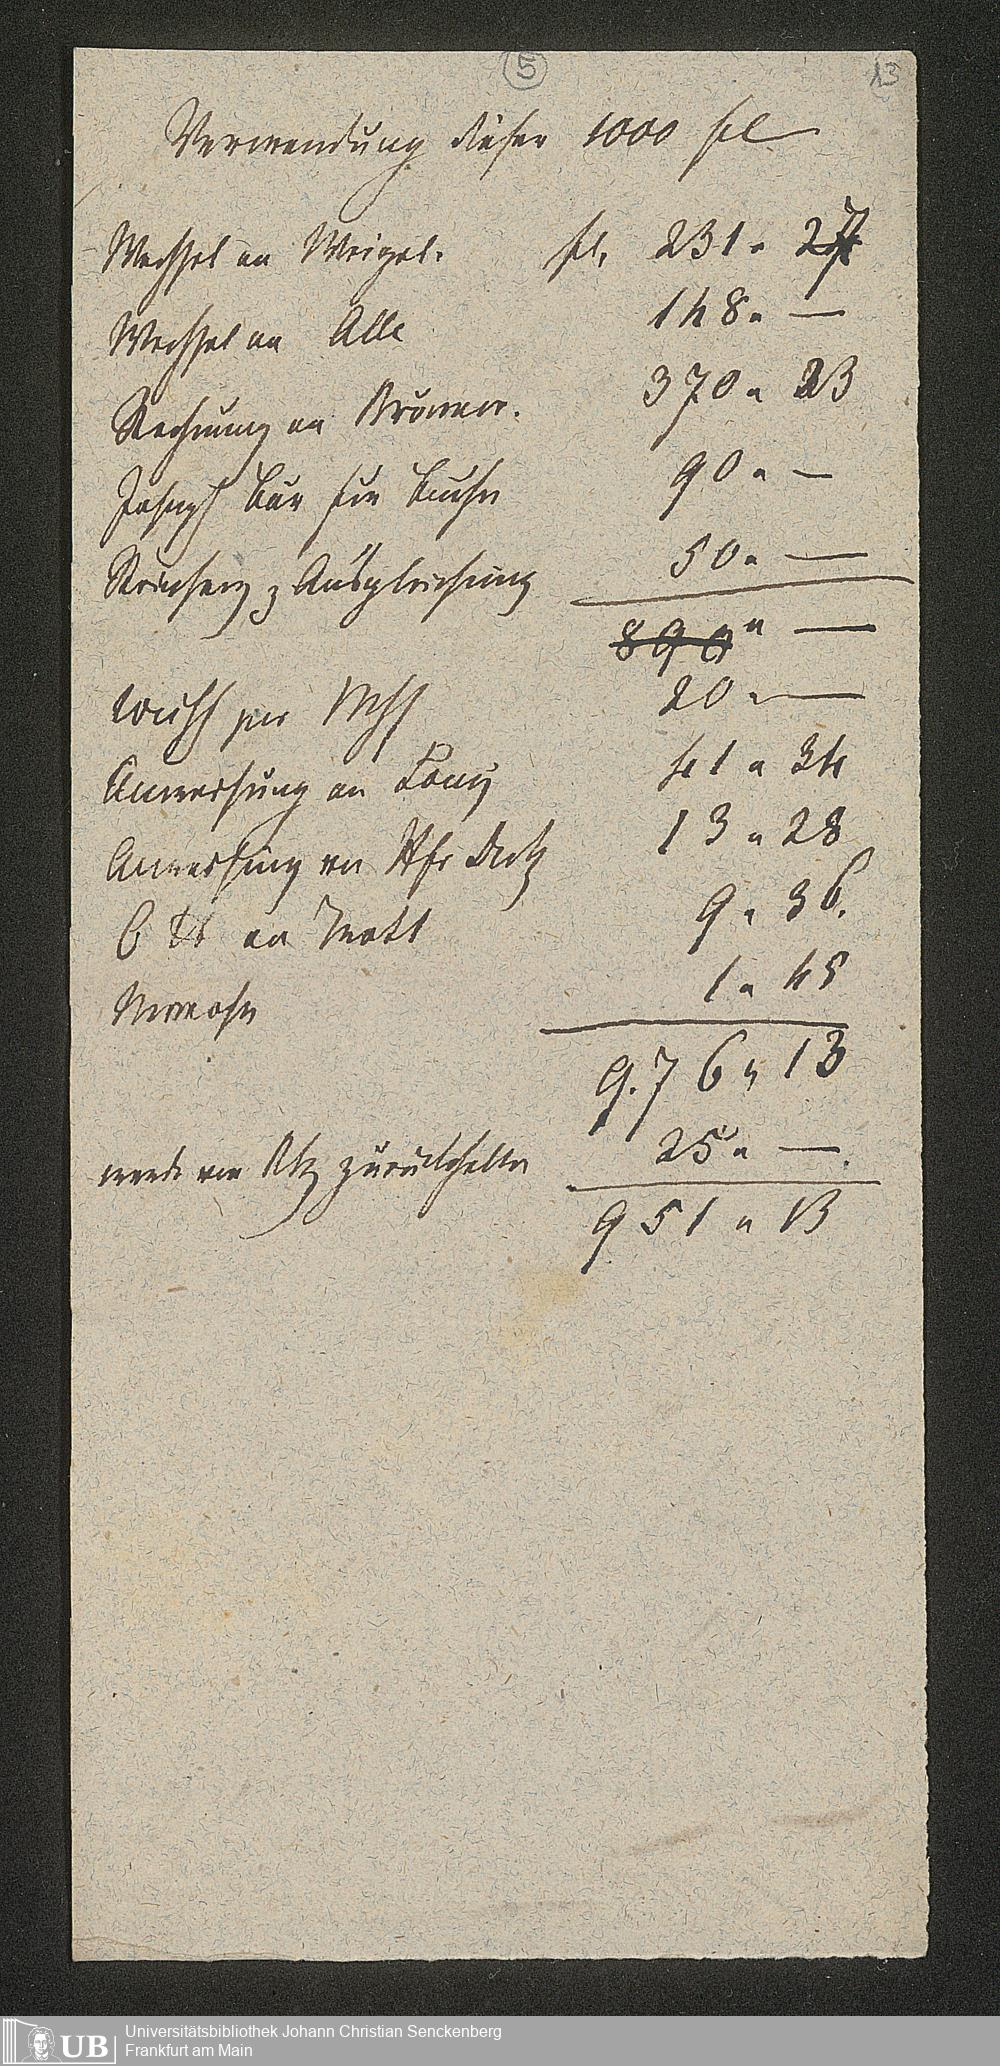 5
13
Verwendung dieser 1000 fl
Wechsel an Weigel. fl. 231 " 27
Wechsel an Alle 148 " —
Rechnung an Brönner. 370 " 23
Joseph Bär für 90 " —
z Ausgleichung 50 " —
890 " —
per 20 " —
Anweisung an 41 " 34
Anweisung an 13 " 28
an 9 " 36.
1 " 45
976 " 13
zurückgehalten 25 " —
951 " 13
UB
Universitätsbibliothek Johann Christian Senckenberg
Frankfurt am Main